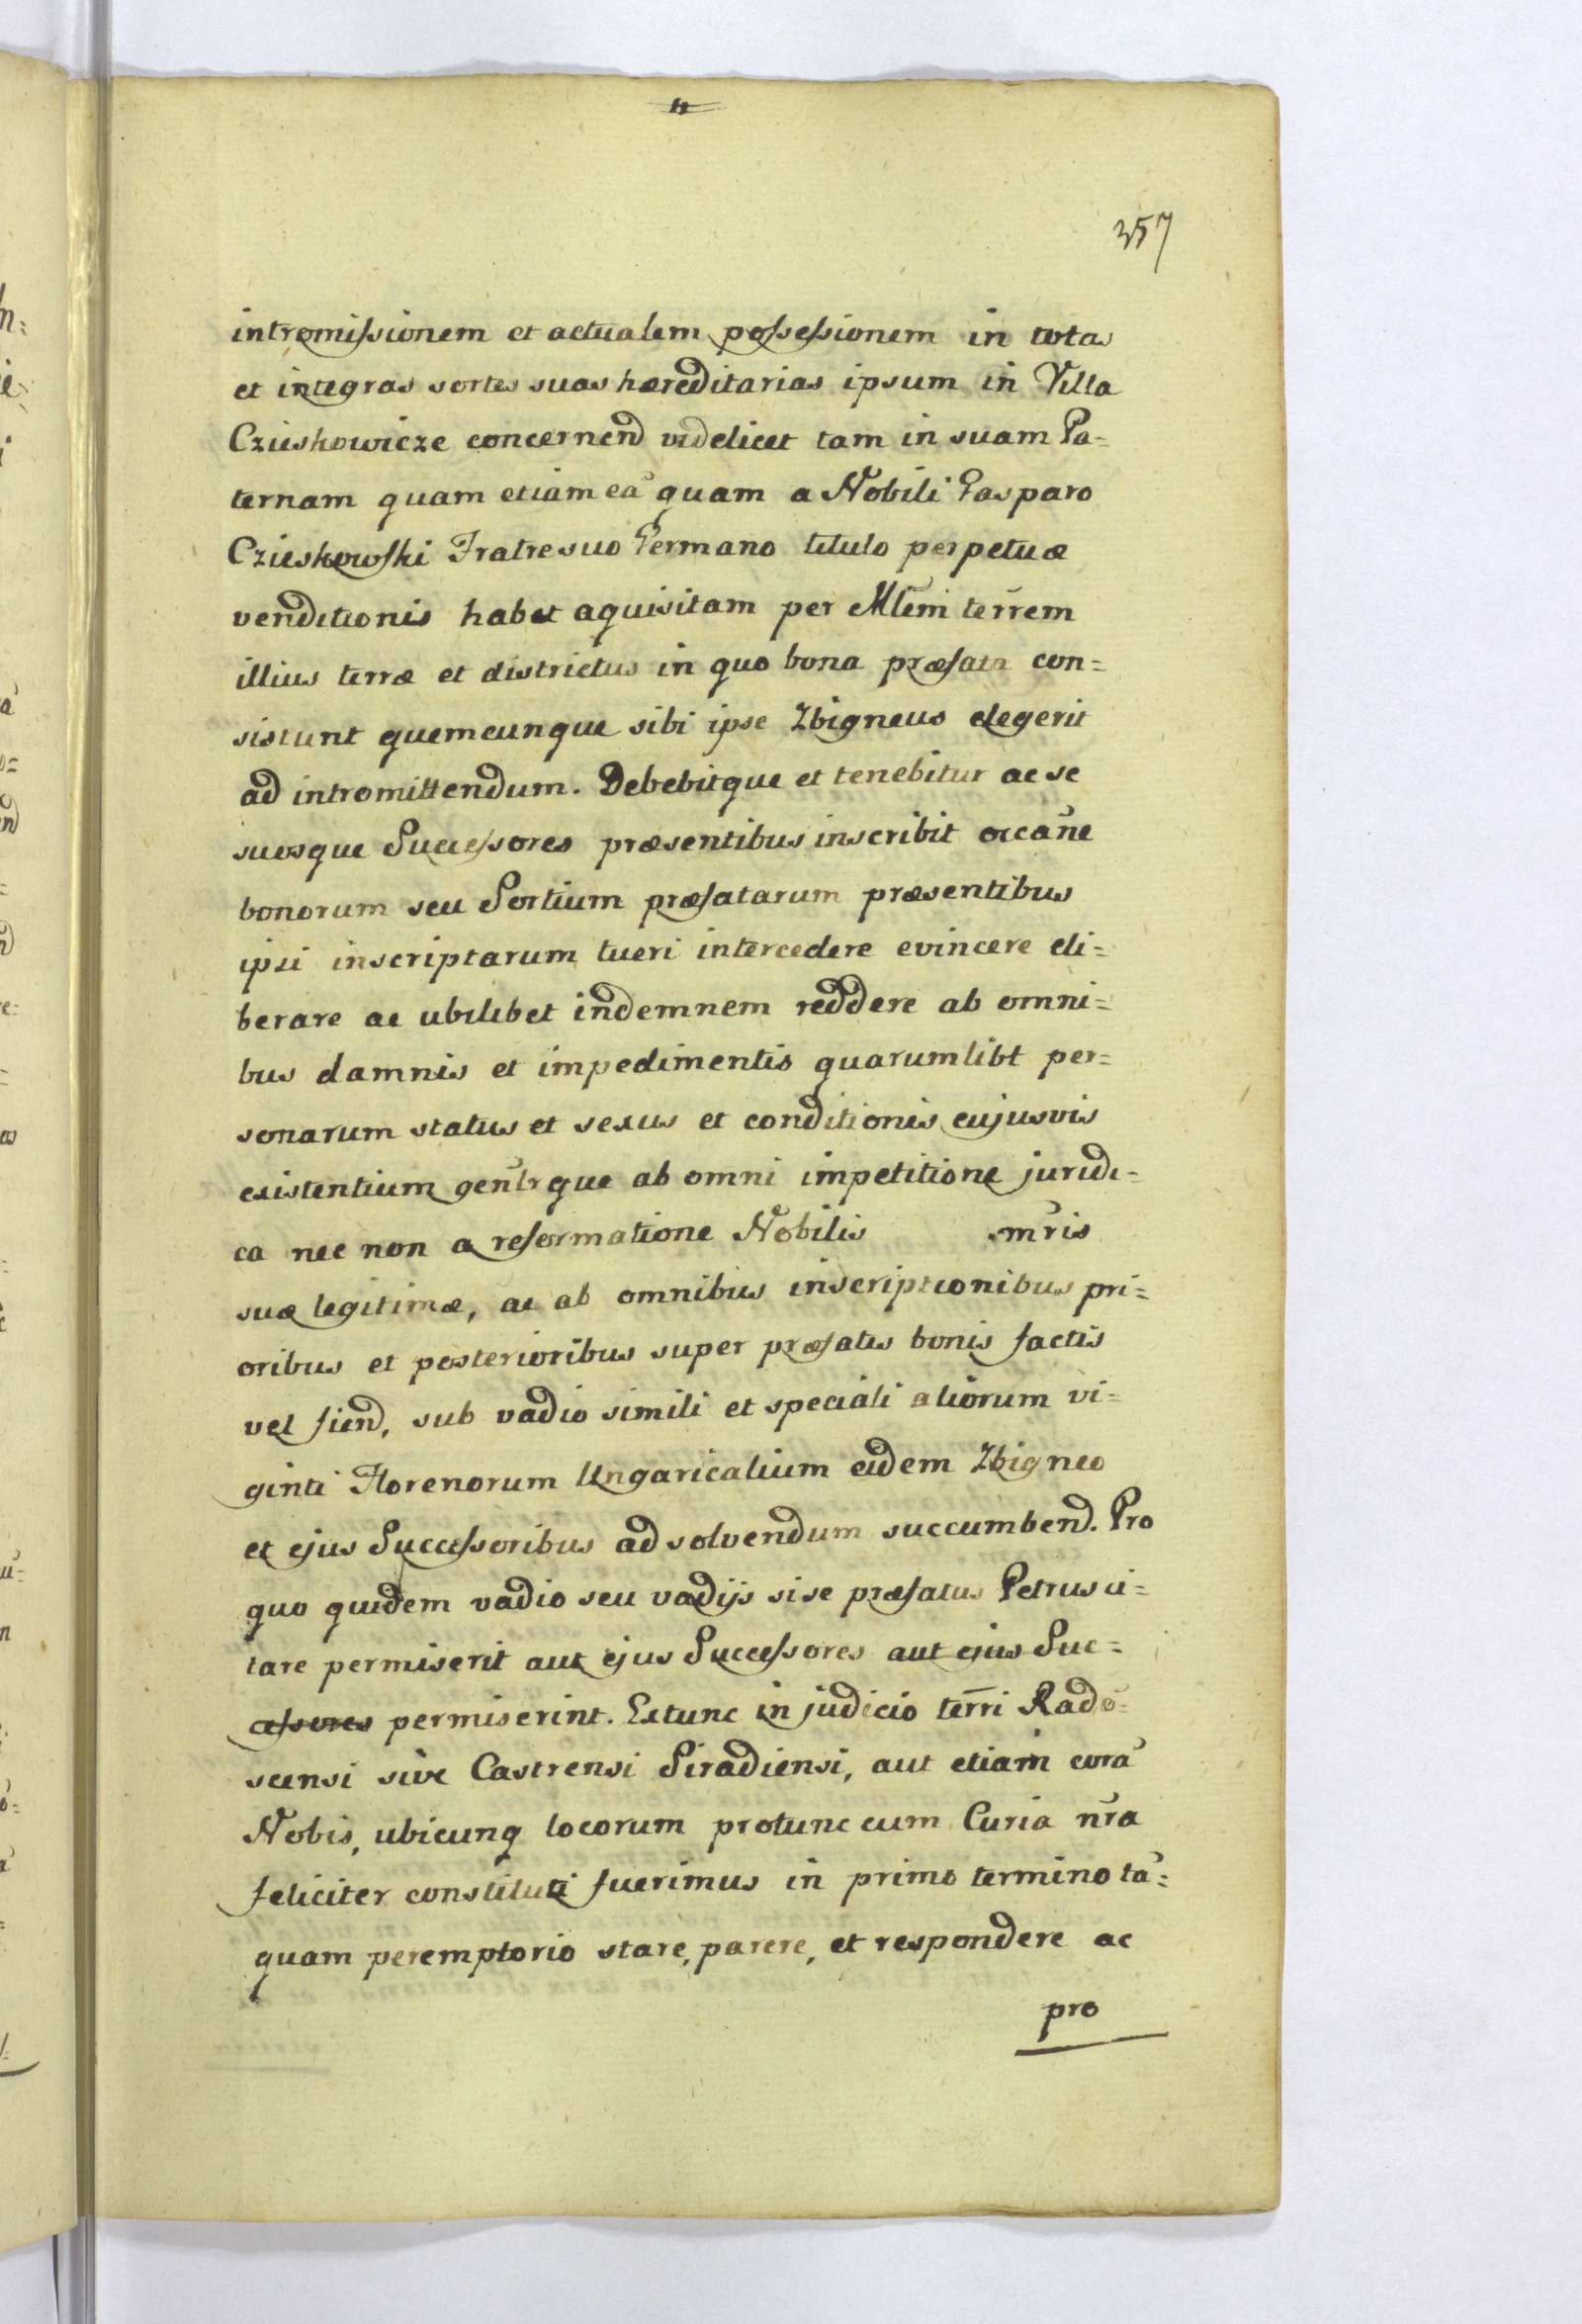 357
intromissionem et actualem possessionem in totas
et integras sortes suas hæreditarias ipsum in Villa
Czieskowicze concernend videlicet tam in suam Pa=
ternam quam etiam eã quam a Nobili Gasparo
Czieskowski Fratre suo Germano titulo perpetuæ
venditionis habet aquisitam per Mlem terrem
illius terræ et districtus in quo bona præfata con=
sistunt quemcunque sibi ipse Zbigneus elegerit
ad intromittendum. Debebitque et tenebitur ac se
suosque Successores præsentibus inscribit occañe
bonorum seu Sortium præfatarum præsentibus
ipsi inscriptarum tueri intercedere evincere eli=
berare ac ubilibet indemnem reddere ab omni=
bus damnis et impedimentis quarumlibt per=
sonarum status et sexus et conditionis cujusvis
existentium genlrque ab omni impetitione juridi=
ca nec non a reformatione Nobilis mris
suæ legitimæ, ac ab omnibus inscriptionibus pri=
oribus et posterioribus super præfatis bonis factis
vel fiend, sub vadio simili et speciali aliorum vi=
ginti Florenorum Ungaricalium eidem Zbigneo
et ejus Successoribus ad solvendum succumbend. Pro
quo quidem vadio seu vadijs si se præfatus Petrus ci=
tare permiserit aut ejus Successores aut ejus Suc=
cessores permiserint. Extunc in judicio terri Rado=
scensi sive Castrensi Siradiensi, aut etiam corã
Nobis, ubicunq locorum protunc cum Curia nra
feliciter constituti fuerimus in primo termino tã=
quam peremptorio stare, parere, et respondere ac
pro